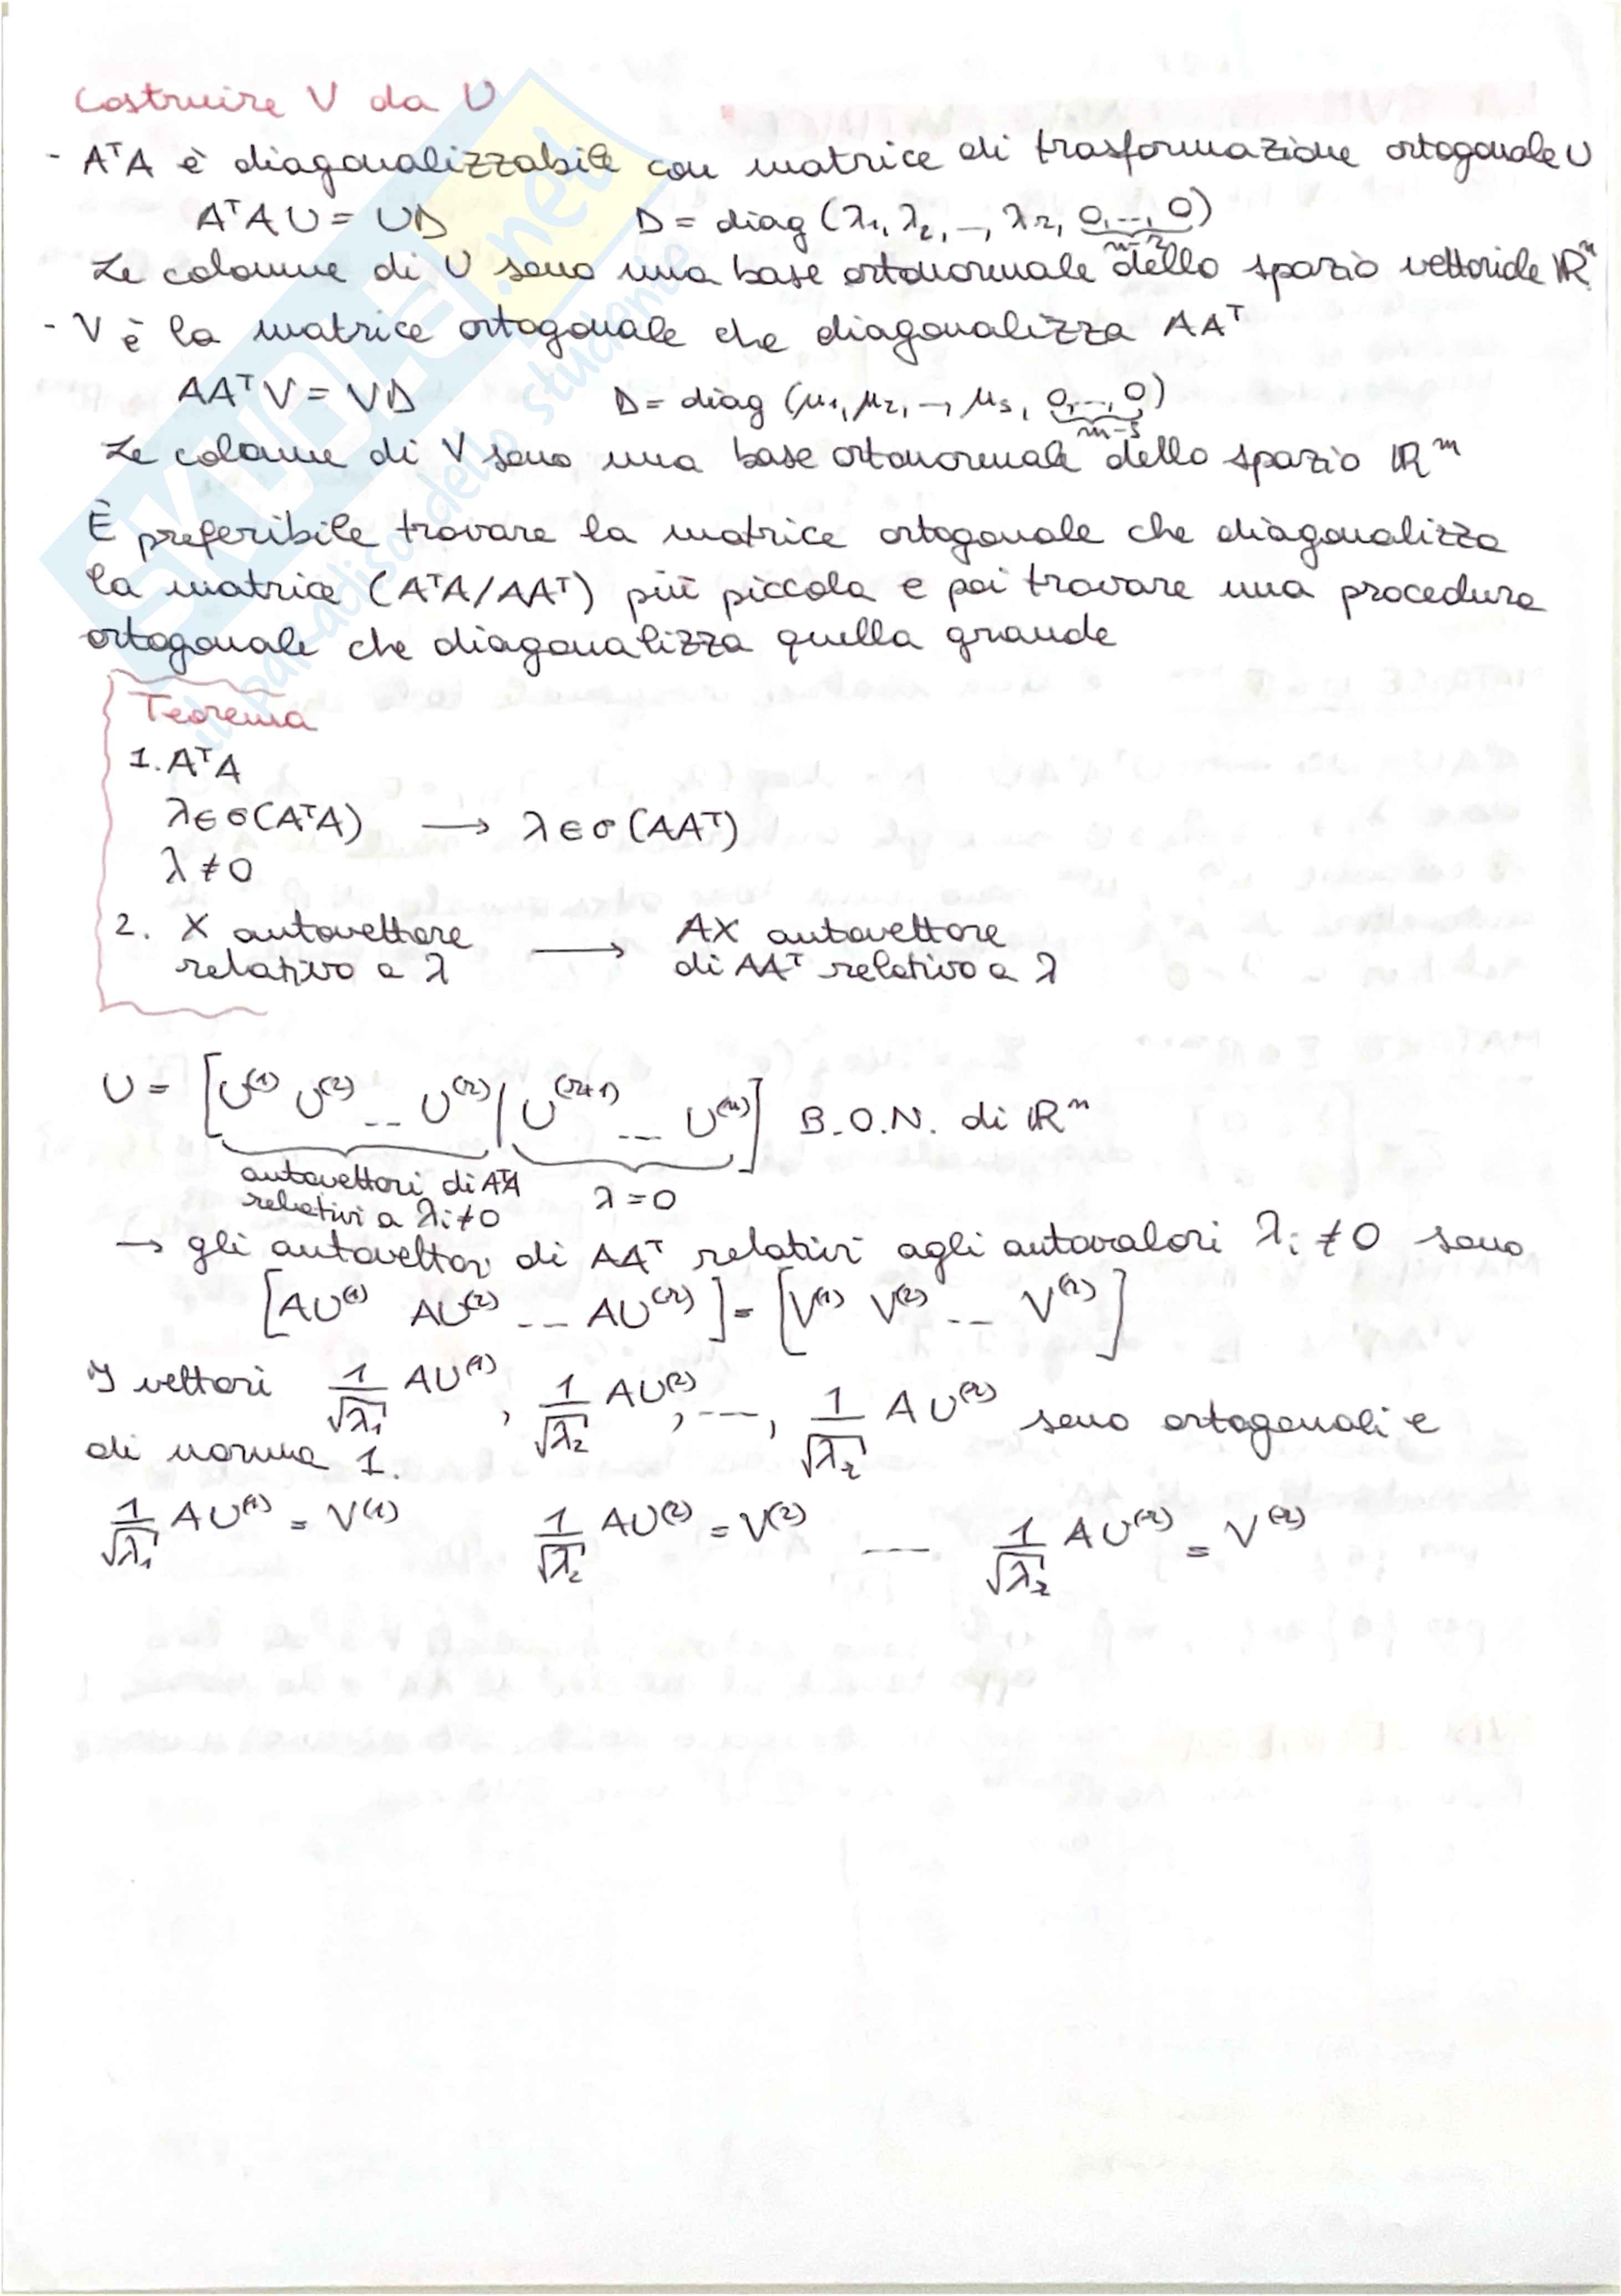 Costruire V da U
- AᵀA è diagonalizzabile con matrice di trasformazione ortogonale U
AᵀAU = UD D = diag (λ₁, λ₂, –, λr, 0,…,0)
n-r
Le colonne di U sono una base ortonormale dello spazio vettoriale ℝⁿ
- V è la matrice ortogonale che diagonalizza AAᵀ
AAᵀV = VD D = diag (μ₁, μ₂, –, μs, 0,…,0)
m-s
Le colonne di V sono una base ortonormale dello spazio ℝᵐ
È preferibile trovare la matrice ortogonale che diagonalizza
la matrice (AᵀA/AAᵀ) più piccola e poi trovare una procedura
ortogonale che diagonalizza quella grande
Teorema
1. AᵀA
λ∈σ(AᵀA) → λ∈σ(AAᵀ)
λ≠0
2. X autovettore → AX autovettore
relativo a λ di AAᵀ relativo a λ
U = [U⁽¹⁾ U⁽²⁾ -- U⁽ʳ⁾ | U⁽ʳ⁺¹⁾ --- U⁽ⁿ⁾] B.O.N. di ℝⁿ
autovettori di AᵀA
relativi a λi≠0 λ=0
→ gli autovettori di AAᵀ relativi agli autovalori λi ≠ 0 sono
[AU⁽¹⁾ AU⁽²⁾ -- AU⁽ʳ⁾] = [V⁽¹⁾ V⁽²⁾ -- V⁽ʳ⁾]
I vettori 1/√λ₁ AU⁽¹⁾, 1/√λ₂ AU⁽²⁾, ---, 1/√λr AU⁽ʳ⁾ sono ortogonali e
di norma 1.
1/√λ₁ AU⁽¹⁾ = V⁽¹⁾ 1/√λ₂ AU⁽²⁾ = V⁽²⁾ ---- 1/√λr AU⁽ʳ⁾ = V⁽ʳ⁾
SKUOLA.net
il paradiso dello studente